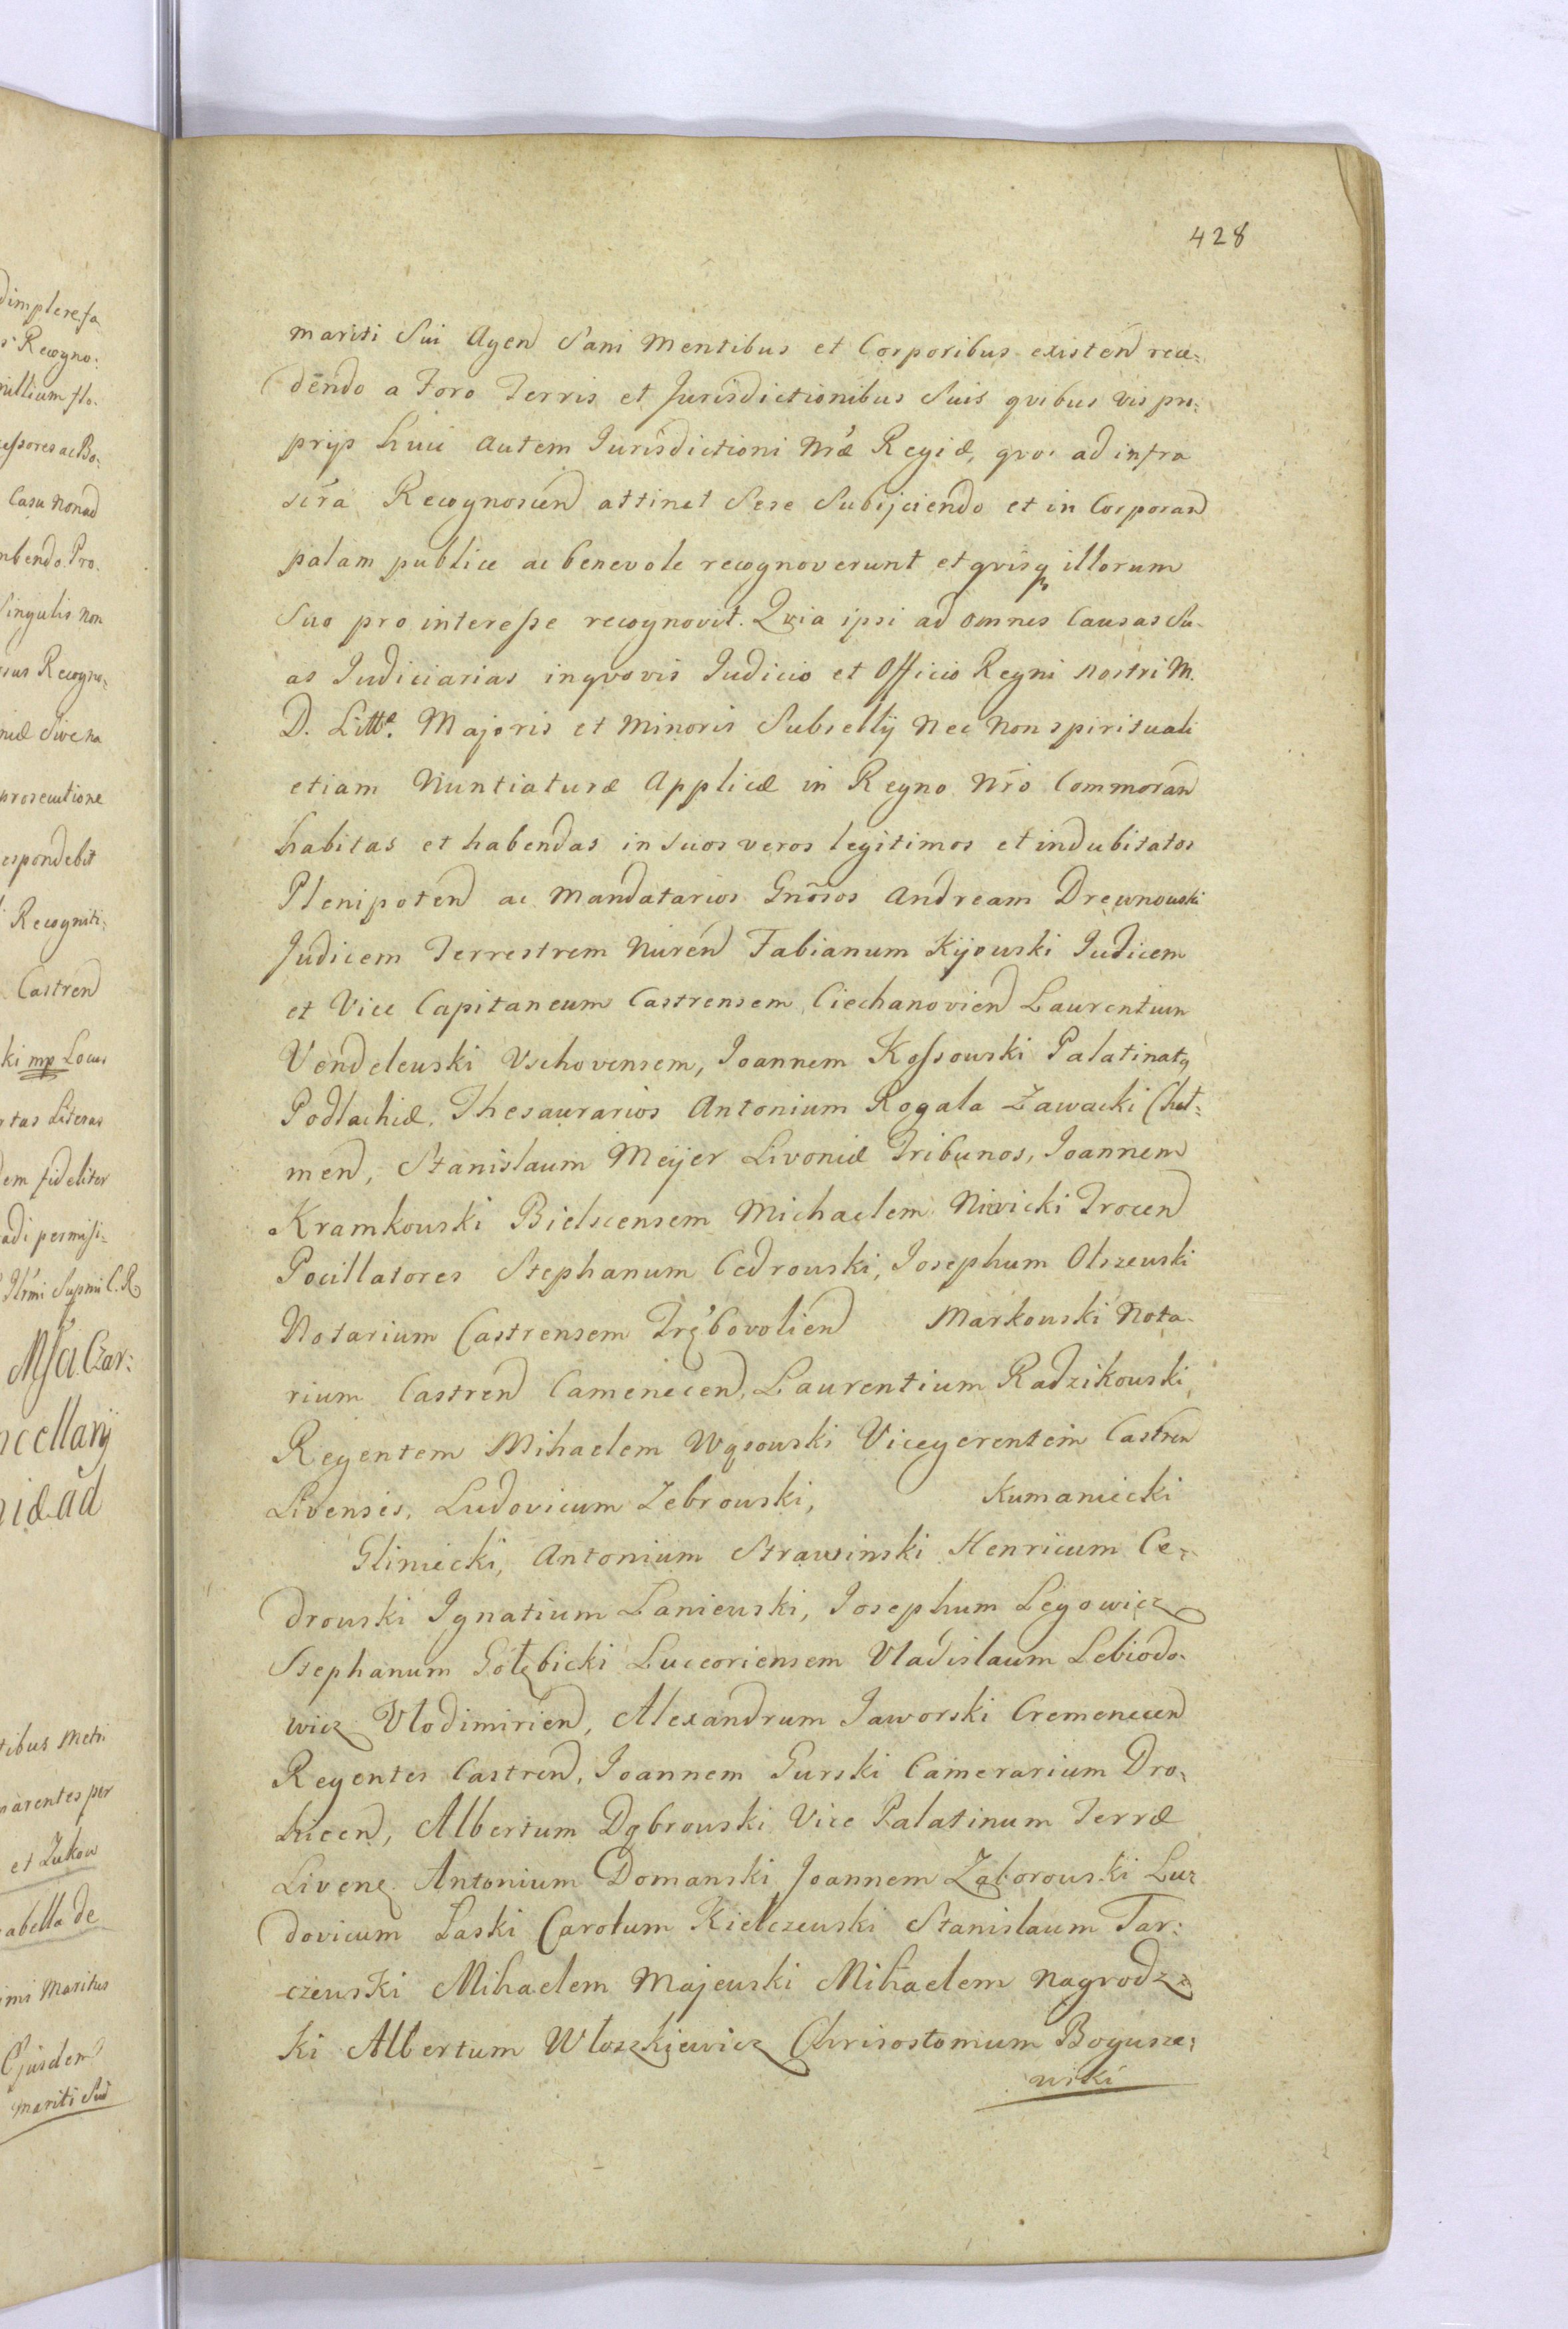 428
mariti Sui Agen̄ Sani Mentibus et Corporibus existen̄ rece=
dēndo a Foro Terris et Jurisdictionibus Suis qvibus vis pro=
prijs huic autem Jurisdictioni Nr̄æ Regiæ, qvo ad infra
scr̄a Recognoscen̄ attinet Sese Subijciendo et in Corporan̄
palam publice ac benevole recognoverunt et qvisq illorum
Suo pro interesse recognovit. Qvia ipsi ad omnes Causas Su-
as Judiciarias in qvovis Judicio et Officio Regni nostri M.
D. Littᵉ. Majoris et Minoris Subsellij nec non spirituali
etiam Nuntiaturæ Applicæ in Regno Nr̄o Commoran̄
habitas et habendas in Suos veros legitimos et indubitatos
Plenipoten̄ ac Mandatarios Gn̄osos Andream Drewnowski
Judicem Terrestrem Nuren̄ Fabianum Kijowski Judicem
et Vice Capitaneum Castrensem Ciechanovien̄ Laurentium
Vendelewski Vschovensem, Joannem Kossowski Palatinatq
Podlachiæ, Thesaurarios Antonium Rogala Zawacki Chel=
men̄, Stanislaum Meijer Livoniæ Tribunos, Joannem
Kramkowski Bielscensem Michaelem Niwicki Trocen̄
Pocillatores Stephanum Cedrowski, Josephum Olszewski
Notarium Castrensem Trębovolien̄ Markowski Nota-
rium Castren̄ Camenecen̄, Laurentium Radzikowski
Regentem Mihaelem Wąsowski Vicegerentem Castren
Livensis, Ludovicum Zebrowski, Kumaniecki
Gliniecki, Antonium Strawinski Henricum Ce=
drowski Ignatium Laniewski, Josephum Legowicz
Stephanum Gołębicki Luceoriensem Vladislaum Lebiodo-
wicz Vlodimirien̄, Alexandrum Jaworski Cremenecen̄
Regentes Castren̄, Joannem Gurski Camerarium Dro=
hicen̄, Albertum Dąbrowski Vice Palatinum Terræ
Livenę Antonium Domanski Joannem Zaborowski Lu=
dovicum Łaski Carolum Kiełczewski Stanislaum Tar=
czewski Mihaelem Majewski Mihaelem Nagrodz=
ki Albertum Wloszkiewicz Chrisostomum Bogusze=
wski